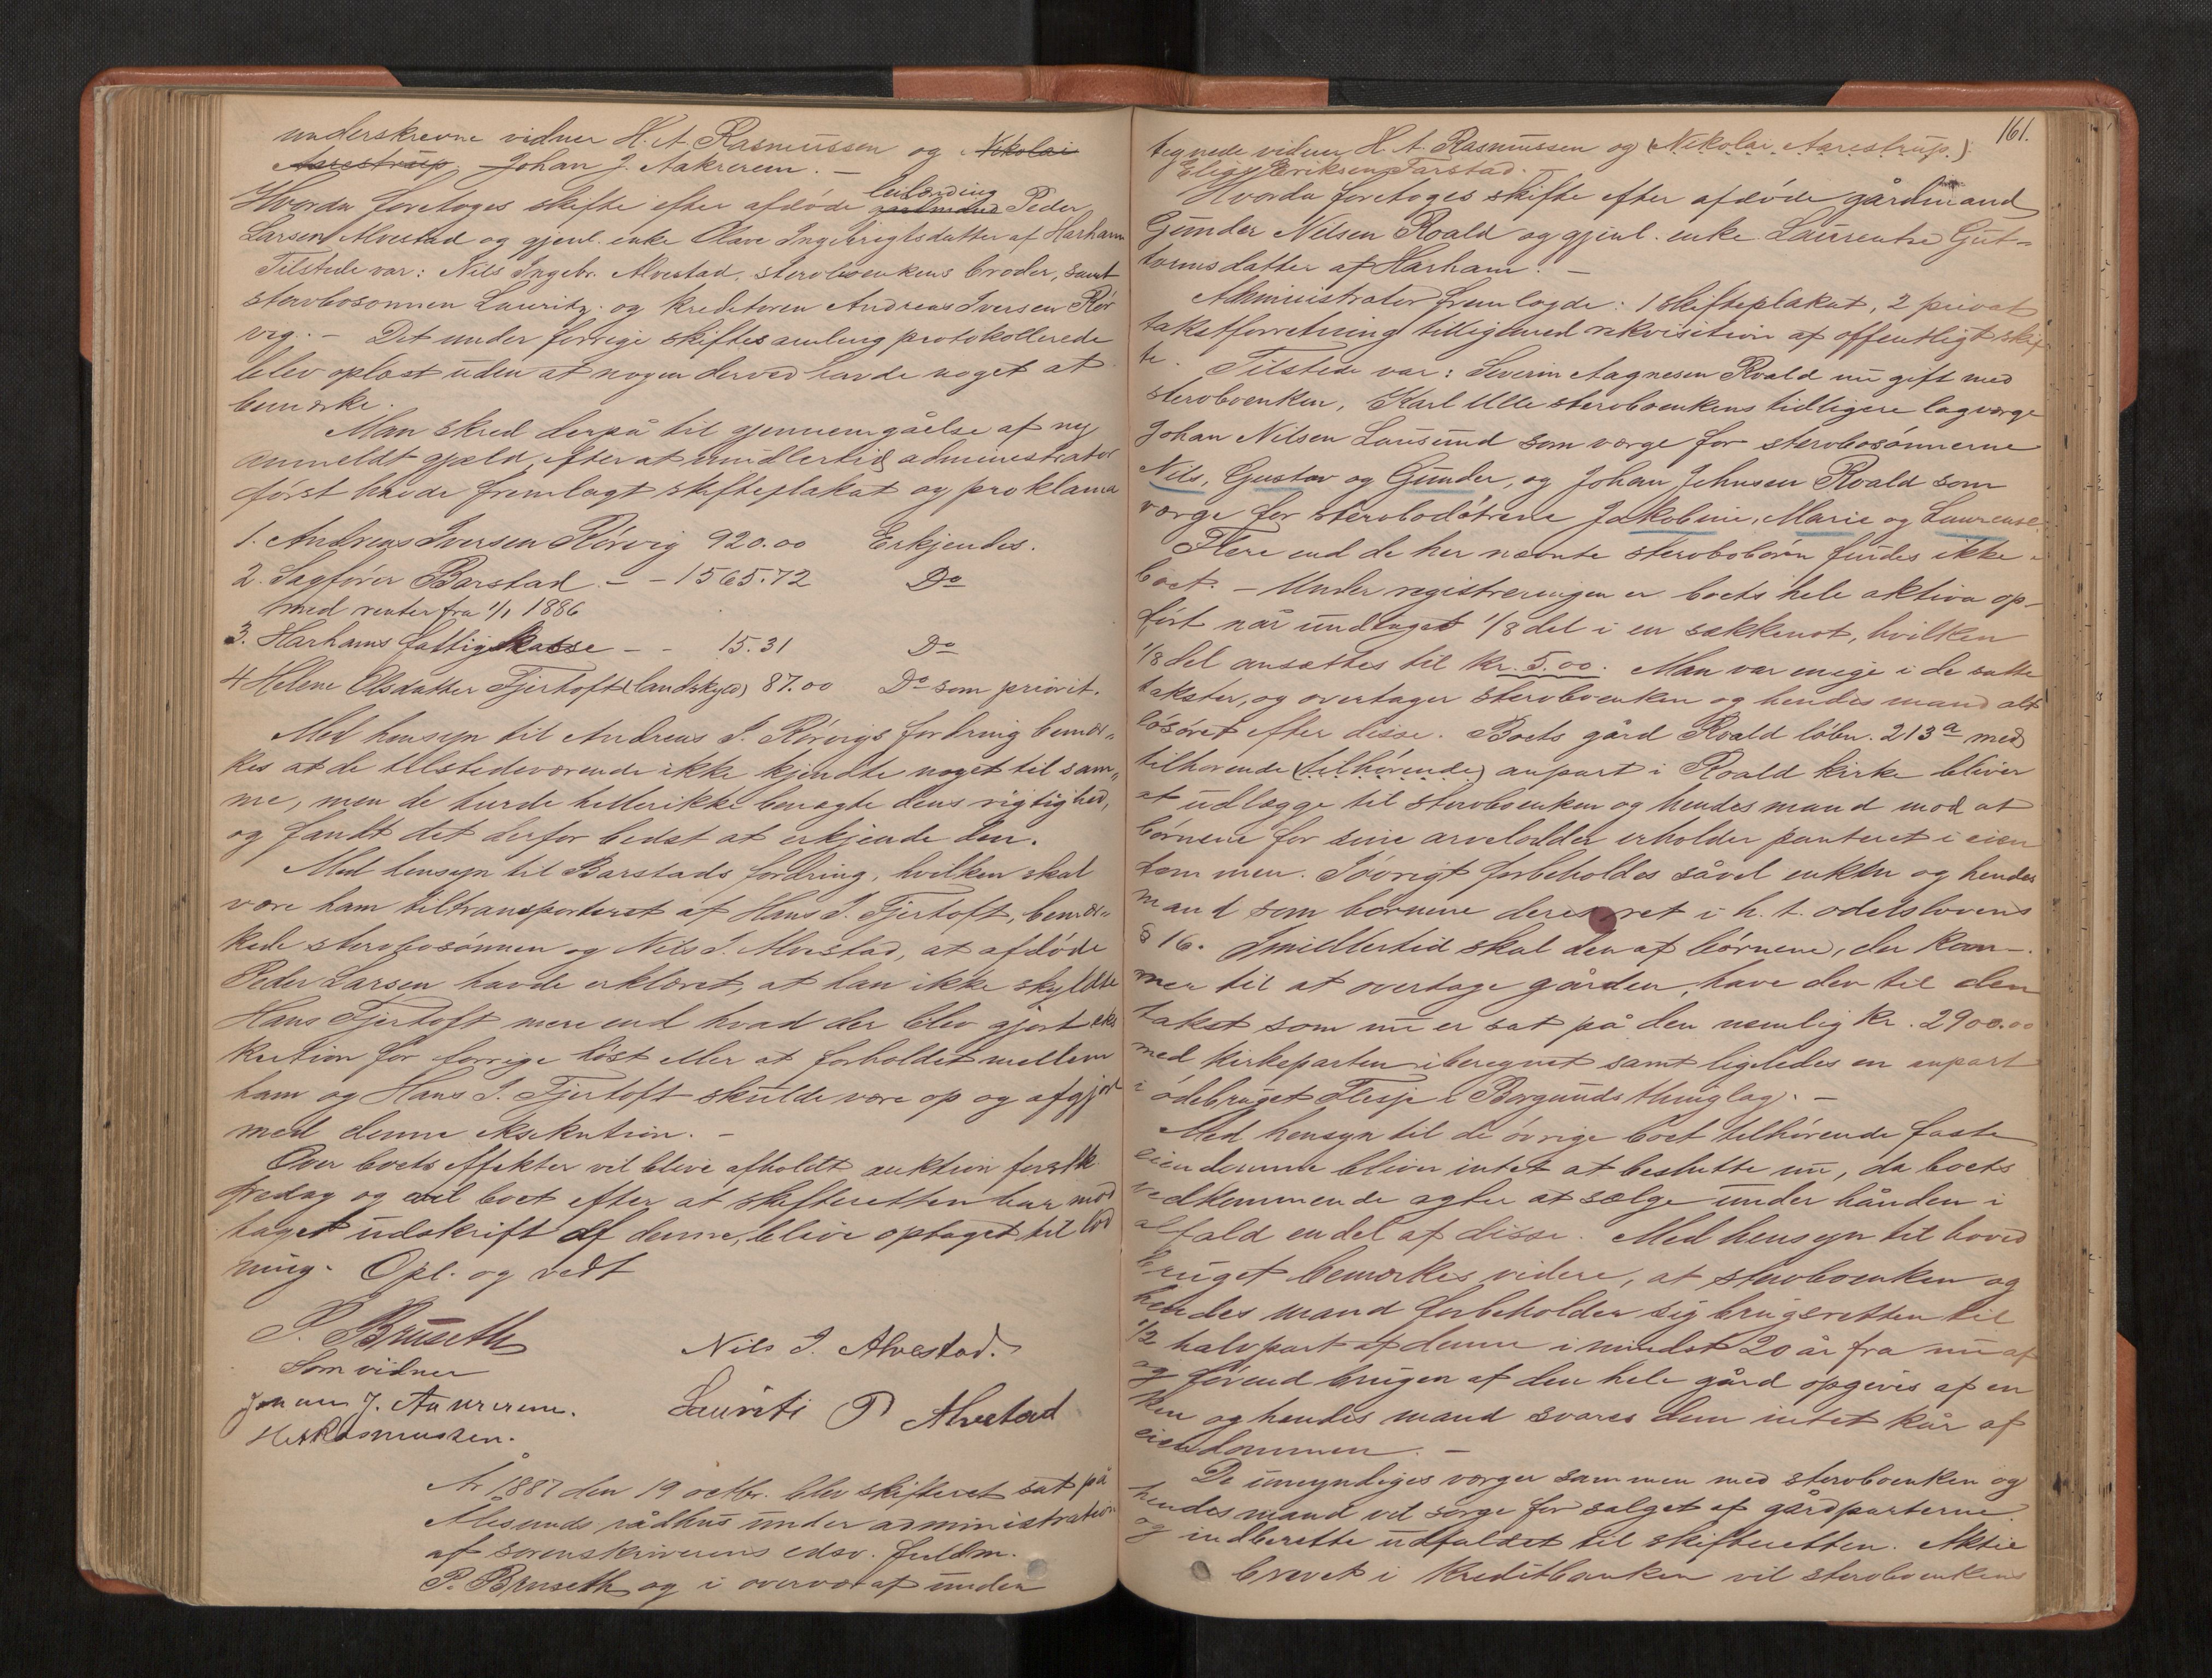 underskrevne vidner H. A. Rasmussen og Nikolai
Aarestrup, Johan J. Aakrerem. —
Hvorda foretoges skifte efter afdöde leilending gaardmand Peder
Larsen Alvestad og gjenl. enke Olave Ingebrigtsdatter af Harham
Tilstede var: Nils Ingebr. Alvestad, stervboenkens broder, samt
stervbosönnen Lauritz. og kreditoren Andreas Iversen Rör
vig. — Det under forrige skiftesamling protokollerede
blev oplæst uden at nogen derved havde noget at
bemærke.
Man skred derpå til gjennemgåelse af ny
anmeldt gjæld, efterat imidlertid administrator
först havde fremlagt skifteplakat og proklama
1. Andreas Iversen Rörvig 920.00 Erkjendes.
2. Sagförer Barstad — — 1565.72 Do
med renter fra 1/1 1886
3. Harhams fattigkasse — — 15.31 Do
4 Helene Olsdatter Fjertoft (landskyld) 87.00 Do som priorit.
Med hensyn til Andreas I. Rörvigs fordring bemær„
kes at de tilstedeværende ikke kjendte noget til sam„
me, men de turde hellerikke benægte dens rigtighed,
og fandt det derfor bedst at erkjende den.
Med hensyn til Barstads fordring, hvilken skal
være ham tiltransporteret af Hans I. Fjertoft, bemær„
kede stervbosönnen og Nils I. Alvestad, at afdöde
Peder Larsen havde erklæret, at han ikke skyldte
Hans Fjertoft mere end hvad der blev gjort eks
kution for forrige höst eller at forholdet mellem
ham og Hans I. Fjertoft skulde være op og afgjort
med denne eksekution. —
Over boets effekter vil blive afholdt auktion förstk.
fredag og vil boet efter at skifteretten har mod
taget udskrift af denne, blive optaget til lod
ning. Opl. og vedt
P. Bruseth
Som vidner Nils I. Alvestad.
Johan J. Aakrerem. Lauriti P Alvestad
H A Rasmussen.
År 1887 den 19 octbr. blev skifteret sat på
Ålesunds rådhus under administration
af sorenskriverens edsv. fuldm.
P. Bruseth og i overvær af under
161.
tegnede vidner H. A. Rasmussen og (Nikolai Aarestrup.)
Elias Eriksen Farstad.
Hvorda foretoges skifte efter afdöde gårdmand
Gunder Nilsen Roald og gjenl. enke Laurentse Gut-
tormsdatter af Harham. —
Administrator fremlagde: 1 skifteplakat, 2 privat
takstforretning tilligemed rekvisition af offentligt skif
te. Tilstede var: Severin Aagnesen Roald nu gift med
stervboenken, Karl Ulle stervboenkens tidligere lagværge
Johan Nilsen Lausund som værge for stervbosönnerne
Nils, Gustav og Gunder, og Johan Johnsen Roald som
værge for stervbodötrene Jakobine, Marie og Laurense.
Flere end de her nævnte stervbobörn findes ikke i
boet. — Under registreringen er boets hele aktiva op-
fört når undtaget 1/8 del i en sækkenot, hvilken
1/8 del ansættes til kr. 5.00. Man var enige i de satte
takster, og overtager stervboenken og hendes mand alt
lösöret efter disse. Boets gård Roald löbn. 213a med
tilhörende (tilhörende) anpart i Roald kirke bliver
at udlægge til stervboenken og hendes mand mod at
börnene for sine arvelodder erholder panteret i eien
dommen. Iövrigt forbeholdes såvel enken og hendes
mand som börnene deres ret i h. t. odelslovens
§ 16. Imidlertid skal den af börnene, der kom-
mer til at overtage gården, have den til den
takst som nu er sat på den nemlig kr. 2900.00
med kirkeparten iberegnet samt ligeledes en anpart
i ödebruget Flesje i Borgunds thinglag. —
Med hensyn til de övrige boet tilhörende faste
eiendomme bliver intet at beslutte nu, da boets
vedkommende agter at sælge under hånden i
alfald endel af disse. Med hensyn til hoved
bruget bemærkes videre, at stervboenken og
hendes mand forbeholder sig brugsretten til
1/2 halvpart af denne i mindst 20 år fra nu af
og förend brugen af den hele gård opgives af en
ken og hendes mand svares dem intet kår af
eiendommen. —
De umyndiges værger sammen med stervboenken og
hendes mand vil sørge for salget af gårdparterne
og indberette udfaldet til skifteretten. Aktie
brevet i Kreditbanken vil stervboenkens